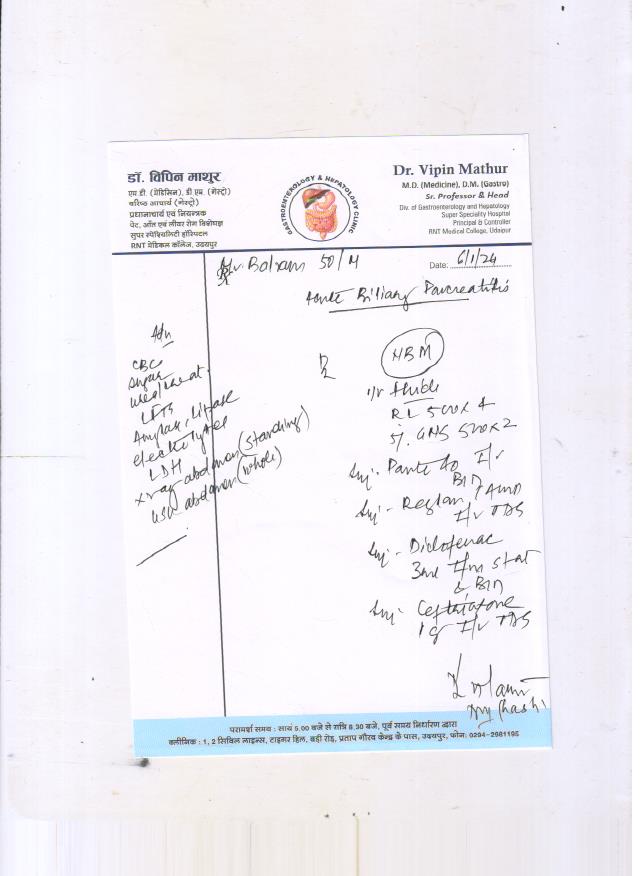 डॉ. विपिन माथुर
एम.डी. (मेडिसिन), डी.एम. (गेस्ट्रो)
वरिष्ठ आचार्य (गेस्ट्रो)
प्रधानाचार्य एवं नियन्त्रक
पेट, आँत एवं लीवर रोग विशेषज्ञ
सुपर स्पेश्यिलिटी हॉस्पिटल
RNT मेडिकल कॉलेज, उदयपुर
GASTROENTEROLOGY & HEPATOLOGY CLINIC
Dr. Vipin Mathur
M.D. (Medicine), D.M. (Gastro)
Sr. Professor & Head
Div. of Gastroenterology and Hepatology
Super Speciality Hospital
Principal & Controller
RNT Medical College, Udaipur
Mr. Balram 50/M
Date: 6/1/24
Acute Biliary Pancreatitis
Adv
CBC
sugar
urea/creat.
LFTs
Amylase, Lipase
electrolytes
LDH
x ray abdomen (standing)
USG abdomen (whole)
Rx
NBM
i/v fluids
RL 500 x 4
5% GNS 500 x 2
Inj - Panto 40 I/v
BID
Inj - Reglan 1 Amp
I/v TDS
Inj - Diclofenac
3ml I/m stat
& BID
Inj - Ceftriaxone
1g I/v TDS
परामर्श समय : सायं 5.00 बजे से रात्रि 8.30 बजे, पूर्व समय निर्धारण द्वारा
क्लीनिक : 1, 2 सिविल लाइन्स, टाइमर हिल, बड़ी रोड़, प्रताप गौरव केन्द्र के पास, उदयपुर, फोन: 0294-2981195